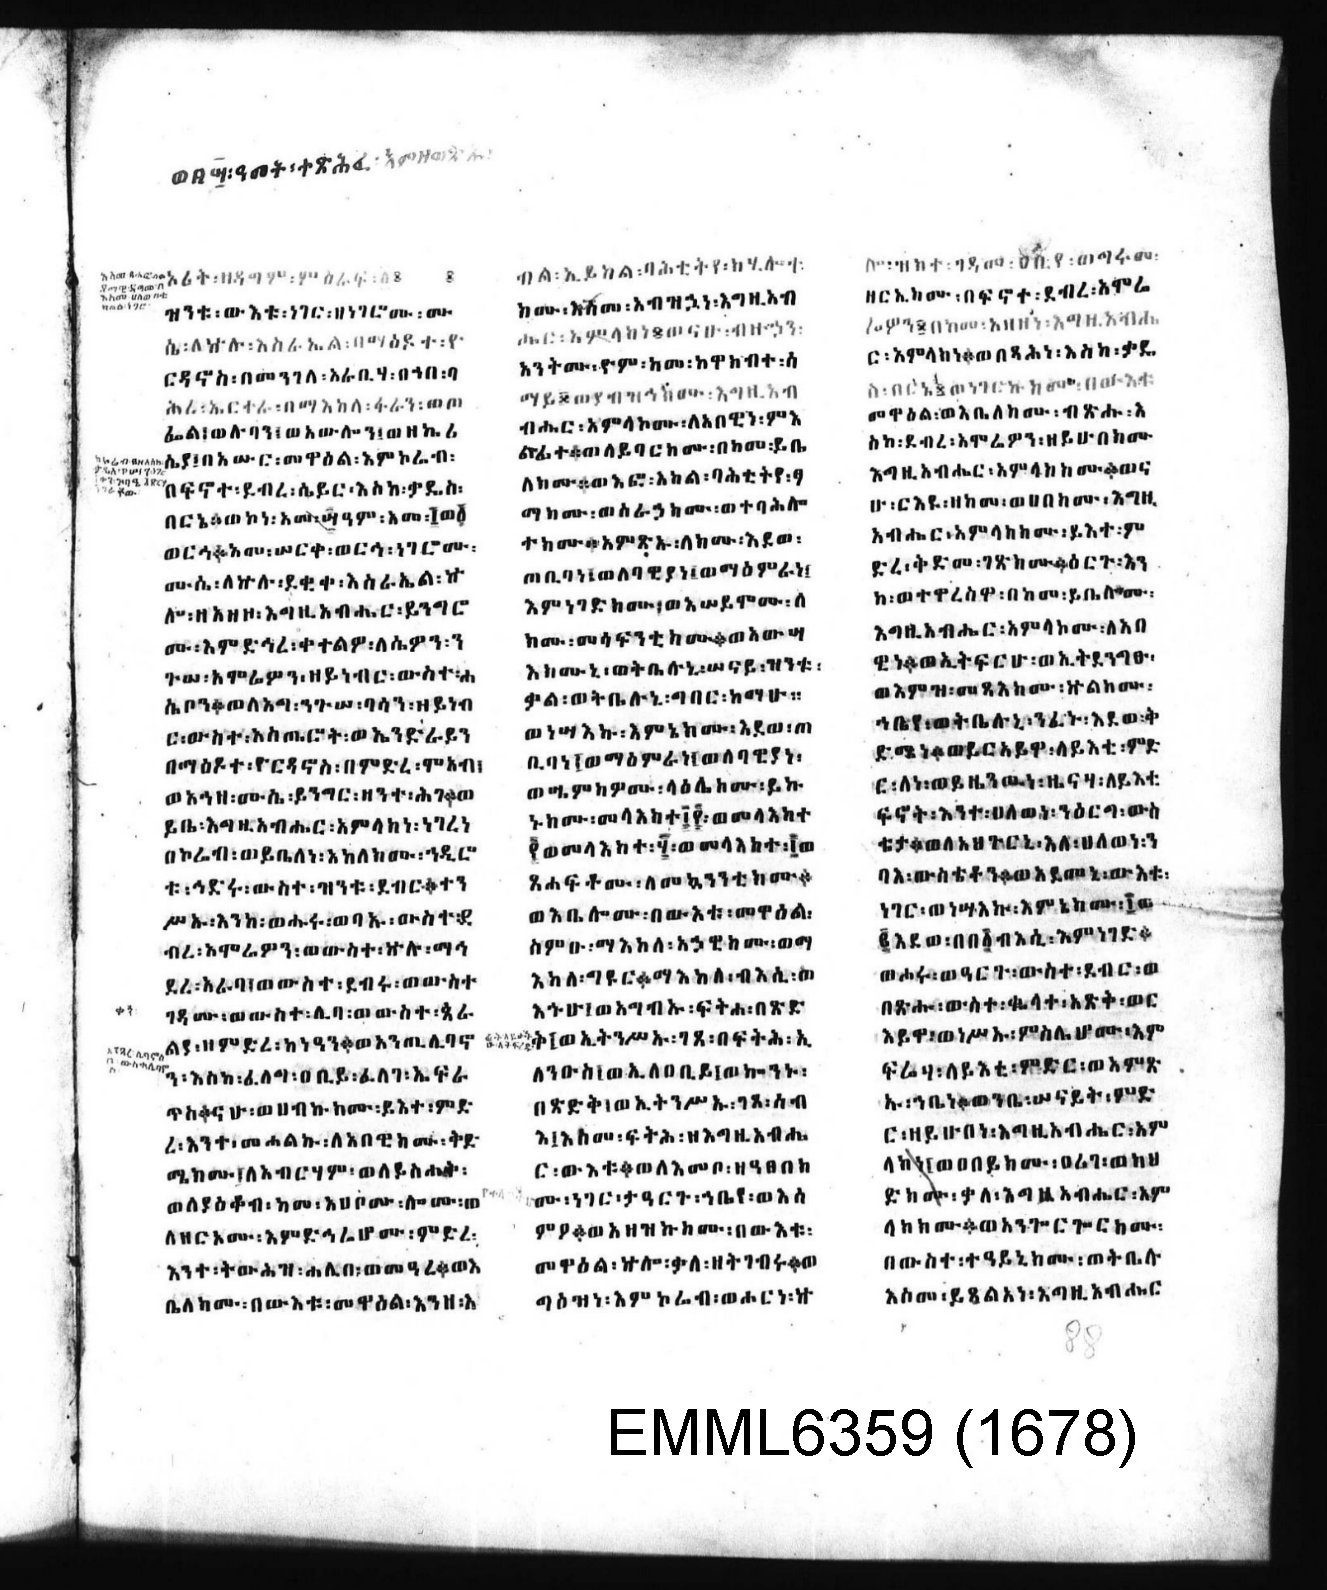 ወበ፵፡ዓመት፡ተጽሕፈ፡እምዘወፅኡ፡
ኦሪት፡ዘዳግም፡ምዕራፍ፡
ዝንቱ፡ውእቱ፡ነገር፡ዘነገሮሙ፡ሙ
ሴ፡ለኵሉ፡እስራኤል፡በማዕዶተ፡ዮ
ርዳኖስ፡በመንገለ፡አራቢሃ፡በኀበ፡ባ
ሕረ፡ኤርትራ፡በማእከለ፡ፋራን፡ወጦ
ፌል፤ወሉባን፤ወአውሎን፤ወዘኬሪ
ሴያ፤በአሡር፡መዋዕል፡እምኮሬብ፡
በፍኖተ፡ደብረ፡ሴይር፡እስከ፡ቃዴስ፡
በርኔ።ወኮነ፡አመ፡፵ዓም፡አመ፡፲ወ፩
ወርኅ።አመ፡ሠርቀ፡ወርኅ፡ነገሮሙ፡
ሙሴ፡ለኵሉ፡ደቂቀ፡እስራኤል፡ኵ
ሎ፡ዘአዘዞ፡እግዚአብሔር፡ይንግሮ
ሙ፡እምድኅረ፡ቀተልዎ፡ለሴዎን፡ን
ጉሠ፡አሞሬዎን፡ዘይነብር፡ውስተ፡ሐ
ሴቦን።ወለአግ፡ንጉሠ፡ባሳን፡ዘይነብ
ር፡ውስተ፡አስጤሮት፡ወኤንድራይን
በማዕዶተ፡ዮርዳኖስ፡በምድረ፡ሞአብ፤
ወአኀዘ፡ሙሴ፡ይንግር፡ዘንተ፡ሕገ።ወ
ይቤ፡እግዚአብሔር፡አምላክነ፡ነገረነ
በኮሬብ፡ወይቤለነ፡እከለክሙ፡ኀዲሮ
ቱ፡ኅድሩ፡ውስተ፡ዝንቱ፡ደብር።ተን
ሥኡ፡እንከ፡ወሑሩ፡ወባኡ፡ውስተ፡ደ
ብረ፡አሞሬዎን፡ወውስተ፡ኵሉ፡ማኅ
ደረ፡አራባ፤ወውስተ፡ደብሩ፡ወውስተ
ገዳሙ፡ወውስተ፡ሊባ፡ወውስተ፡ጰራ
ልያ፡ዘምድረ፡ከነዓን።ወአንጢሊባኖ
ን፡እስከ፡ፈለግ፡ዐቢይ፡ፈለገ፡ኤፍራ
ጥስ።ናሁ፡ወሀብኩክሙ፡ይእተ፡ምድ
ረ፡እንተ፡መሐልኩ፡ለአበዊክሙ፡ቅድ
ሚክሙ፤ለአብርሃም፡ወለይስሐቅ፡
ወለያዕቆብ፡ከመ፡አሀቦሙ፡ሎሙ፡ወ
ለዘርእሙ፡እምድኅሬሆሙ፡ምድረ፡
እንተ፡ትውሕዝ፡ሐሊበ፡ወመዓረ።ወእ
ቤለክሙ፡በውእቱ፡መዋዕል፡እንዘ፡እ
ብል፡ኢይክል፡ባሕቲትየ፡ከሃሎተ
ክሙ፡እስመ፡አብዝኀነ፡እግዚአብ
ሔር፡አምላክነ።ወናሁ፡ብዙኃን፡
አንትሙ፡ዮም፡ከመ፡ከዋክብተ፡ሰ
ማይ።ወያብዝኅክሙ፡እግዚአብ
ብሔር፡አምላኮሙ፡ለአበዊነ፡ምእ
ልፊተ።ወለይባርክሙ፡በከመ፡ይቤ
ለክሙ።ወእፎ፡እክል፡ባሕቲትየ፡ፃ
ማክሙ፡ወስራኃክሙ፡ወተባሕሎ
ተክሙ።አምጽኡ፡ለክሙ፡እደወ፡
ጠቢባነ፤ወለባዊያነ፤ወማዕምራነ፤
እምነገድክሙ፤ወእሠይሞሙ፡ለ
ክሙ፡መሳፍንቲክሙ።ወአውሣ
እክሙኒ፡ወትቤሉኒ፡ሠናይ፡ዝንቱ፡
ቃል፡ወትቤሉኒ፡ግበር፡ከማሁ።
ወነሣእኩ፡እምኔክሙ፡እደወ፡ጠ
ቢባነ፤ወማዕምራነ፤ወለባዊያነ፡
ወሤምክዎሙ፡ላዕሌክሙ፡ይኩ
ኑክሙ፡መላእክተ፡፲፻፡ወመላእክተ
፻ወመላእክተ፡፶፡ወመላእክተ፡፲ወ
ጸሐፍቶሙ፡ለመኳንንቲክሙ።
ወእቤሎሙ፡በውእቱ፡መዋዕል፡
ስምዑ፡ማእከለ፡አኃዊክሙ፡ወማ
እከለ፡ግዩር።ማእከለ፡ብእሲ፡ወ
እኁሁ፤ወአግብኡ፡ፍትሐ፡በጽድ
ቅ፤ወኢትንሥኡ፡ገጸ፡በፍትሕ፡ኢ
ለንዑስ፤ወኢለዐቢይ፤ወኰንኑ፡
በጽድቅ፤ወኢትንሥኡ፡ገጸ፡ሰብ
እ፤እስመ፡ፍትሕ፡ዘእግዚአብሔ
ር፡ውእቱ።ወለእመቦ፡ዘዓፀበክ
ሙ፡ነገር፡ታዓርጉ፡ኀቤየ፡ወእስ
ምዖ።ወአዘዝኩክሙ፡በውእቱ፡
መዋዕል፡ኵሎ፡ቃለ፡ዘትገብሩ።ወ
ግዕዝነ፡እምኮሬብ፡ወሖርነ፡ኵ
ሎ፡ዝክተ፡ገዳመ፡ዐቢየ፡ወግሩመ፡
ዘርኢክሙ፡በፍኖተ፡ደብረ፡አሞሬ
ሬዎን።በከመ፡አዘዘነ፡እግዚአብሔ
ር፡አምላክነ።ወበጻሕነ፡እስከ፡ቃዴ
ስ፡በርኔ።ወነገርኩክሙ፡በውእቱ
መዋዕል፡ወእቤለክሙ፡ብጽሑ፡እ
ስከ፡ደብረ፡አሞሬዎን፡ዘይሁበክሙ
እግዚአብሔር፡አምላክክሙ።ወና
ሁ፡ርእዩ፡ዘከመ፡ወሀበክሙ፡እግዚ
አብሔር፡አምላክክሙ፡ይእተ፡ም
ድረ፡ቅድመ፡ገጽክሙ።ዕርጉ፡እን
ከ፡ወተዋረስዋ፡በከመ፡ይቤሎሙ፡
እግዚአብሔር፡አምላኮሙ፡ለአበ
ዊነ።ወኢትፍርሁ፡ወኢትደንግፁ፡
ወእምዝ፡መጻእክሙ፡ኵልክሙ፡
ኀቤየ፡ወትቤሉኒ፡ንፈኑ፡እደወ፡ቅ
ድሜነ።ወይርአይዋ፡ለይእቲ፡ምድ
ር፡ለነ፡ወይዜንዉነ፡ዜናሃ፡ለይእቲ
ፍኖት፡እንተ፡ሀለወነ፡ንዕርግ፡ውስ
ቴታ።ወለአህጉርኒ፡እለ፡ሀለወነ፡ን
ባእ፡ውስቴቶን።ወአደመኒ፡ውእቱ፡
ነገር፡ወነሣእኩ፡እምኔክሙ፡፲ወ
፪እደወ፡በበ፩ብእሲ፡እምነገድ።
ወሖሩ፡ወዓርጉ፡ውስተ፡ደብር፡ወ
በጽሑ፡ውስተ፡ቈላተ፡አጽቅ፡ወር
እይዋ፡ወነሥኡ፡ምስሌሆሙ፡እም
ፍሬሃ፡ለይእቲ፡ምድር፡ወአምጽ
ኡ፡ኀቤነ።ወንቤ፡ሠናይት፡ምድ
ር፡ዘይሁበነ፡እግዚአብሔር፡አም
ላክነ፤ወዐበይክሙ፡ዐሪገ፡ወክህ
ድክሙ፡ቃለ፡እግዚአብሔር፡አም
ላክክሙ።ወአንጐርጐርክሙ፡
በውስተ፡ተዓይኒክሙ፡ወትቤሉ
እስመ፡ይጸልአነ፡እግዚአብሔር
88
EMML6359 (1678)